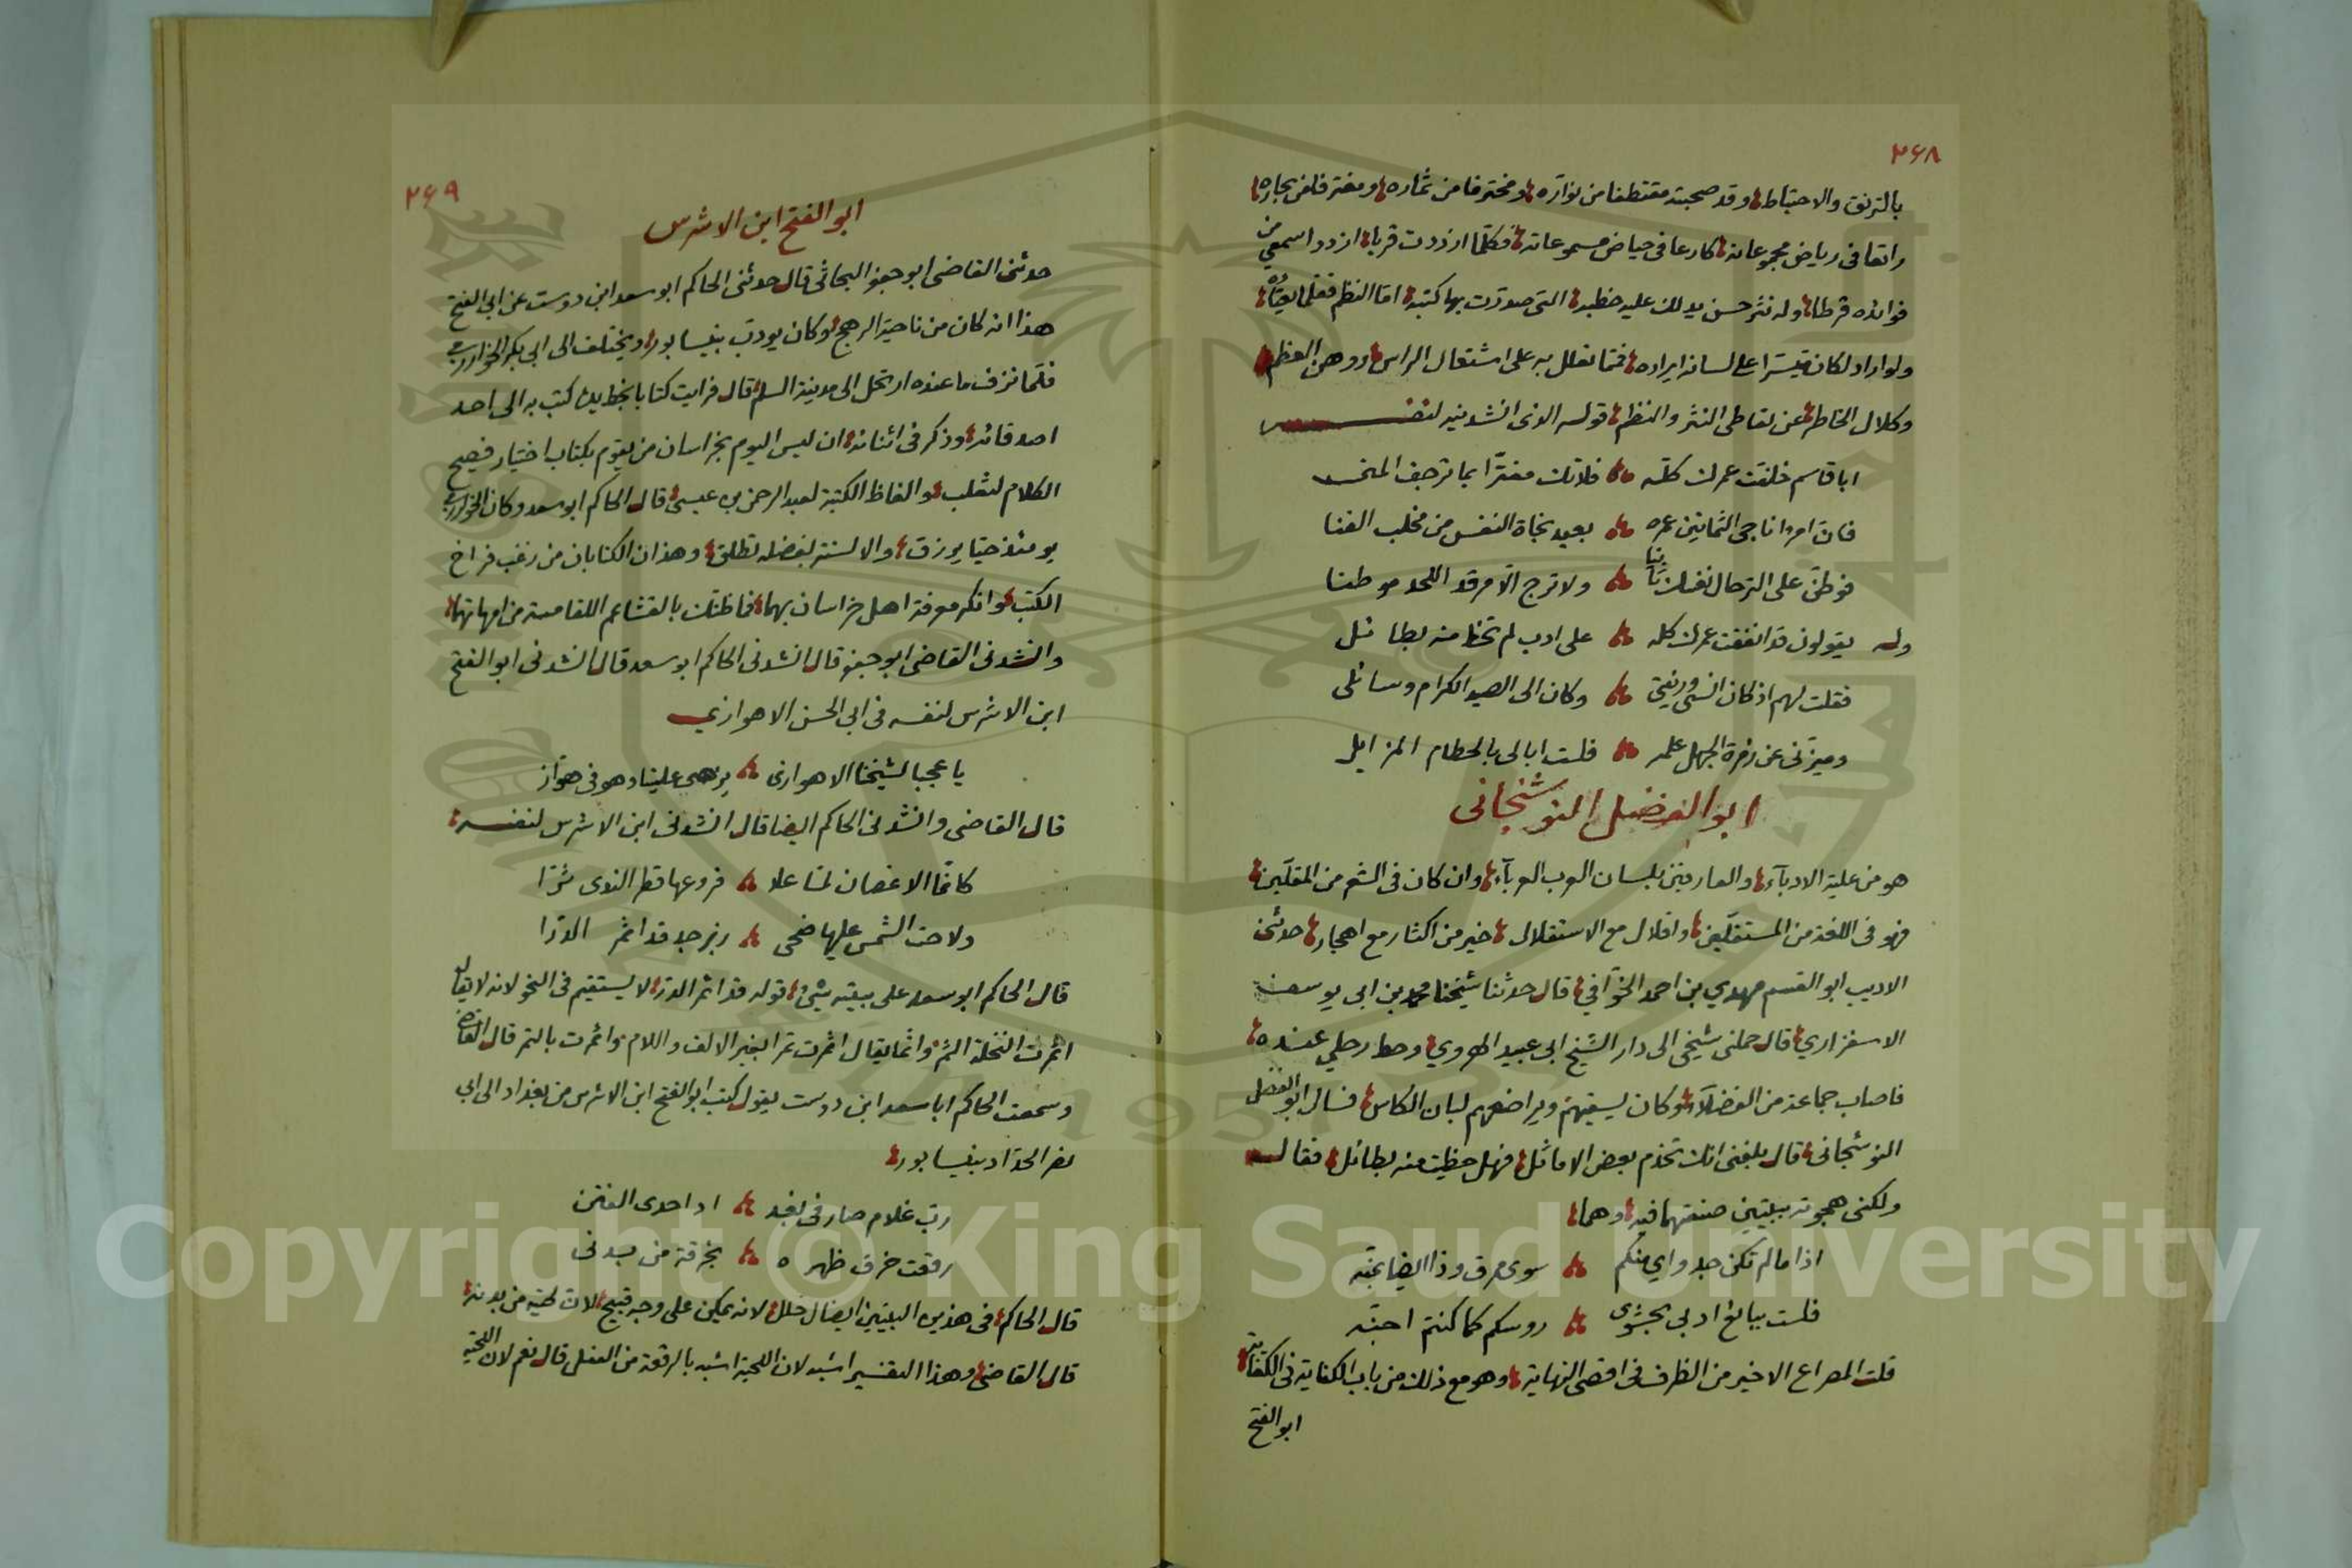 ٢٦٨
بالترنق والاحتياط وقد صحبته مقتطفا من نواره ومخترفا من ثماره ومغترفا من بحاره
راتعا فى رياض مجموعاته كارعا فى حياض مسموعاته فكلما ازددت قربا ازدد اسمعي من
فوائده قرطا وله نثر حسن يدلك عليه خطبه التى صدرت بها كتبه اما النظم فقلما يعيّاه
ولو اراد لكان متيسرا على لسانه ايراده فمما تعلل به على اشتعال الراس ووهن العظم
وكلال الخاطر عن تعاطى النثر والنظم قوله الذى انشدنيه لنفسه
ابا قاسم خلفت عمرك كله فلاتك مغترا بما ترجف المنى
فان امرءا ناجى الثمانين عمره بعيد نجاة النفس من مخلب الفنا
فوطن على الترحال نفسك ولا ترج الا مرقد اللحد موطنا
وله يقولون قد انفقت عمرك كله على ادب لم تحظ منه بطائل
فقلت لهم اذ كان انسى ورفعتى وكان الى الصيد الكرام وسائلى
وميزنى عن زمرة الجهل علمه فلست ابالى بالحطام المزايل
ابو الفضل النوشنجانى
هو من علية الادبآء والعارفين بلسان العرب العربآء وان كان فى الشعر من المقلين
فهو فى اللغة من المستقلين واقلال مع الاستقلال خير من اكثار مع اهجار حدثنى
الاديب ابو القسم مهدي بن احمد الخوافي قال حدثنا شيخنا محمد بن ابى يوسف
الاسفزاري قال حملنى شيخى الى دار الشيخ ابى عبيد الهروي وحط رحلي عنده
فاصاب جماعة من الفضلآء وكان يسقيهم ويراضعهم لبان الكاس فسال ابو الفضل
النوشنجانى قال بلغنى انك تخدم بعض الاماثل فهل حظيت منه بطائل فقال
ولكنى هجوته ببيتين صنعتهما فيه وهما
اذا ما لم تكن جدواي منكم سوى مرق وذا ايضا بمنه
فلست ببائع ادبى بحشوى روسكم كما كنتم احبنه
قلت المصراع الاخير من الظرف فى اقصى النهاية وهو مع ذلك من باب الكفاية فى الكفاية
ابو الفتح
٢٦٩
ابو الفتح ابن الاشرس
حدثنى القاضى ابو جعفر البحاثى قال حدثنى الحاكم ابو سعد ابن دوست عن ابى الفتح
هذا انه كان من ناحية الرخج وكان يودب بنيسابور ويختلف الى ابى بكر الخوارزمي
فلما نزف ما عنده ارتحل الى مدينة السلم قال فرايت كتابا بخط يده كتب به الى احد
اصدقائه وذكر فى اثنائه ان ليس اليوم بخراسان من يقوم بكتاب اختيار فصيح
الكلام لثعلب والفاظ الكتبة لعبد الرحمن بن عيسى قال الحاكم ابو سعد وكان الخوارزمي
يومئذ حيا يرزق والالسنة بفضله تطلق وهذان الكتابان من زغب فراخ
الكتب وانكر معرفة اهل خراسان بهما فما ظنك بالقشاعم اللقامسة من امهاتهما
وانشدنى القاضى ابو جعفر قال انشدنى الحاكم ابو سعد قال انشدنى ابو الفتح
ابن الاشرس لنفسه فى ابى الحسن الاهوازي
يا عجبا لشيخنا الاهوازى يزهى علينا وهو فى هواز
قال القاضى وانشدنى الحاكم ايضا قال انشدنى ابن الاشرس لنفسه
كانما الاغصان لما علا فروعها قطر الندى نثرا
ولاحت الشمس عليها ضحى زبرجد قد اثمر الدرا
قال الحاكم ابو سعد على بيتيه شئ قوله قد اثمر الدر لا يستقيم فى النحو لانه لا يقال
اثمرت النخلة الثمر وانما يقال اثمرت ثمرا بغير الالف واللام واثمرت بالتمر قال القاضى
وسمعت الحاكم ابا سعد ابن دوست يقول كتب ابو الفتح ابن الاشرس من بغداد الى ابى
نصر الحداد بنيسابور
رب غلام صار فى بغد اد احدى الفتن
رقعت خرق ظهره بخرقة من بدنى
قال الحاكم فى هذين البيتين ايضا خلل لانه يمكن على وجه قبيح لان لحيته من بدنه
قال القاضى وهذا التفسير اشبه لان اللحية اشبه بالرقعة من الفعل قال نعم لان اللحية